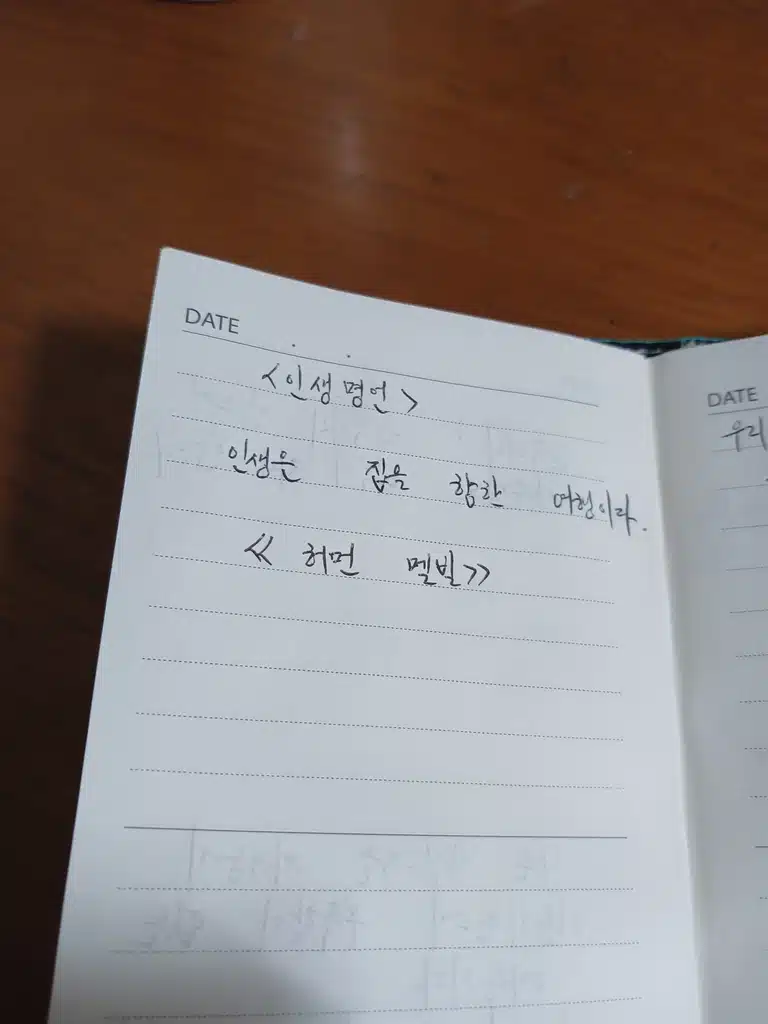 DATE
<인생명언>
인생은 집을 향한 여행이다.
《 허먼 멜빌》
DATE
우리